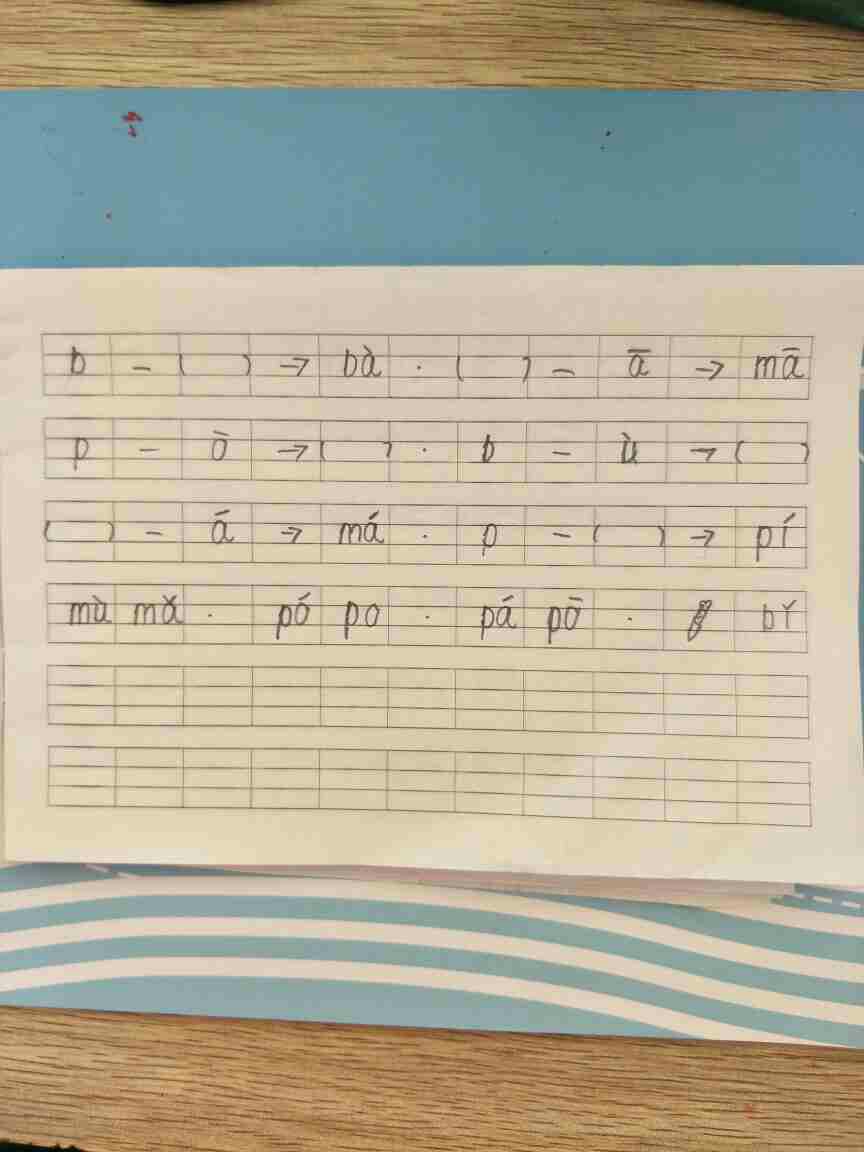 b - ( ) → bà . ( ) - ā → mā
p - ō → ( ) . b - ù → ( )
( ) - á → má . p - ( ) → pí
mù mǎ . pó po . pá pō . bǐ